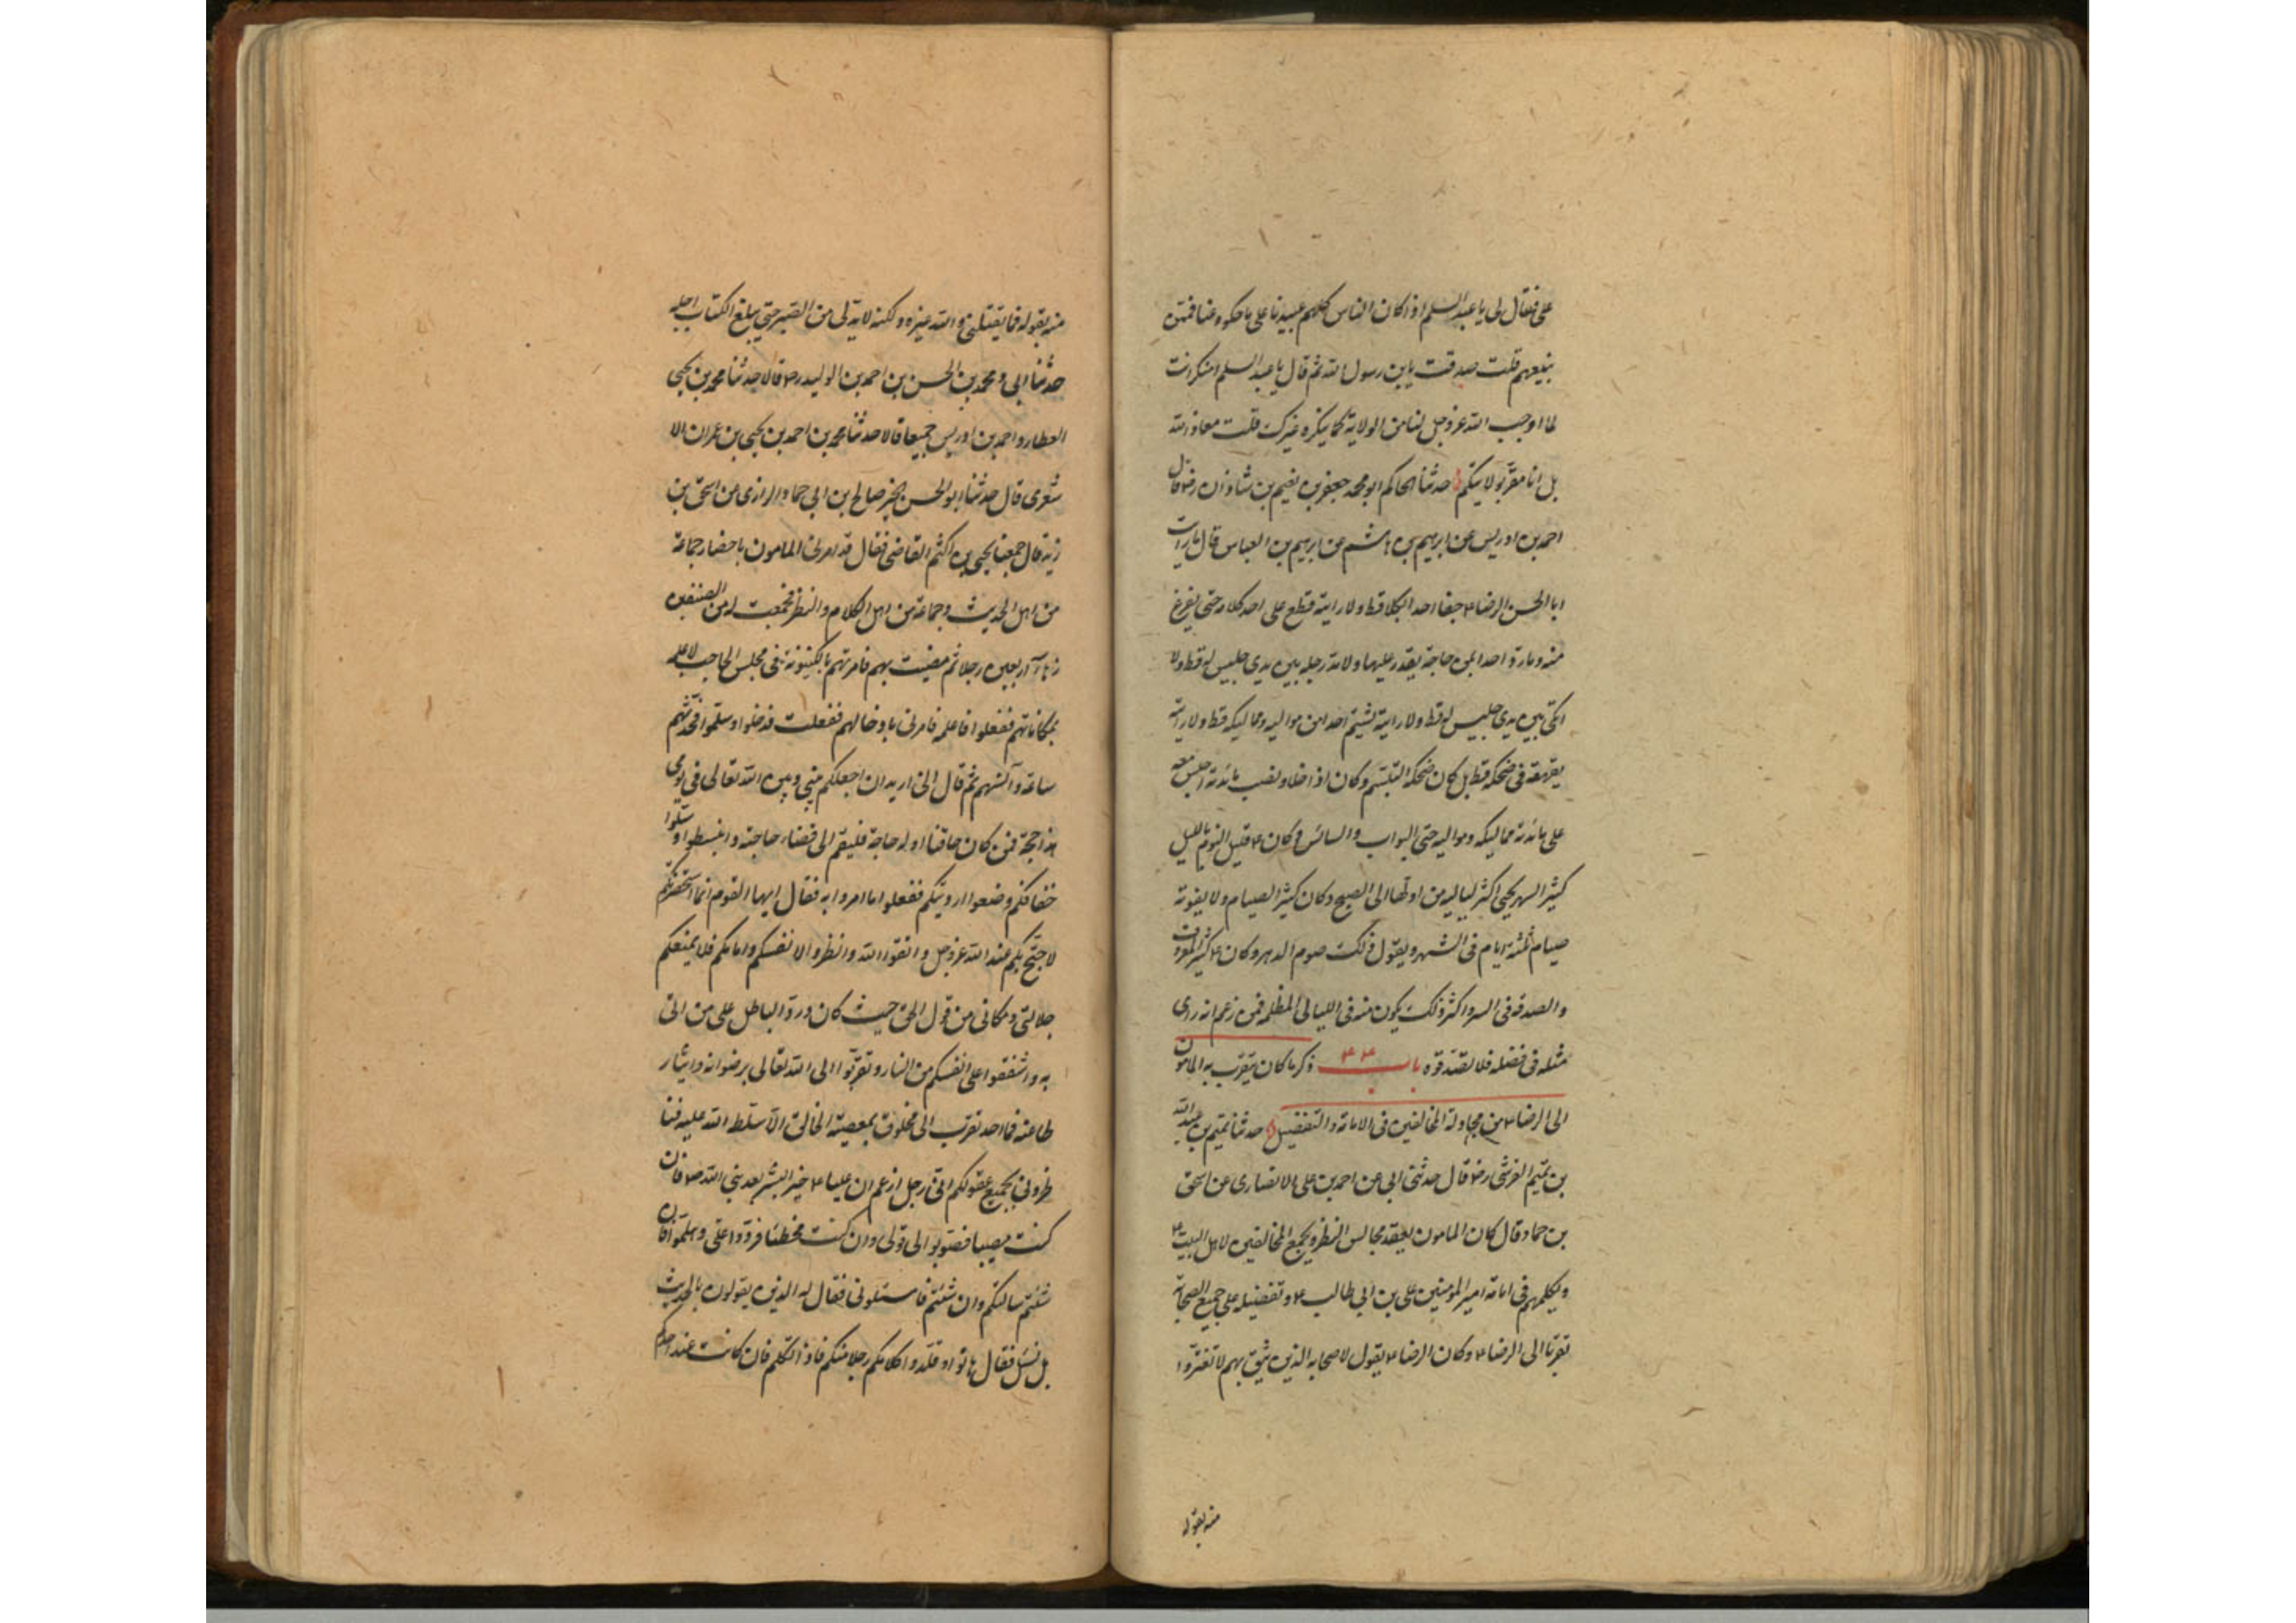 على فقال لى يا عبد السلم اذا كان الناس كلهم عبيدنا على ما حكوه عنا فممن
نبيعهم قلت صدقت يابن رسول الله ثم قال يا عبد السلم امنكر انت
لما اوجب الله عز وجل لنا من الولاية كما ينكره غيرك قلت معاذ الله
بل انا مقر بولايتكم حدثنا الحاكم ابو محمد جعفر بن نعيم بن شاذان رضه قال
احمد بن ادريس عن ابرهيم بن هاشم عن ابرهيم بن العباس قال ما رايت
ابا الحسن الرضا ع جفا احدا بكلام قط ولا رايته قطع على احد كلامه حتى يفرغ
منه وما رد احدا عن حاجة يقدر عليها ولا مد رجله بين يدى جليس له قط ولا
اتكى بين يدى جليس له قط ولا رايته يشتم احدا من مواليه ومماليكه قط ولا رايته
يقهقه فى ضحكه قط بل كان ضحكه التبسم وكان اذا خلا ونصب مائدته اجلس معه
على مائدته مماليكه ومواليه حتى البواب والسائس وكان ع قليل النوم بالليل
كثير السهر يحيى اكثر لياليه من اولها الى الصبح وكان كثير الصيام ولا يفوته
صيام ثلثة ايام فى الشهر ويقول ذلك صوم الدهر وكان ع كثير المعروف
والصدقة فى السر واكثر ذلك يكون منه فى الليالى المظلمة فمن زعم انه راى
مثله فى فضله فلا تصدقوه باب ۴۴ ذكر ما كان يتقرب به المامون
الى الرضا ع من مجادلة المخالفين فى الامامة والتفضيل حدثنا تميم بن عبد الله
بن تميم القرشى رضه قال حدثنى ابى عن احمد بن على الانصارى عن اسحق
بن حماد قال كان المامون يعقد مجالس النظر ويجمع المخالفين لاهل البيت ع
ويكلمهم فى امامة امير المؤمنين على بن ابى طالب ع وتفضيله على جميع الصحابة
تقربا الى الرضا ع وكان الرضا ع يقول لاصحابه الذين يثق بهم لا تغتروا
منه بقوله
منه بقوله فما يقتلنى والله غيره ولكنه لا بد لى من الصبر حتى يبلغ الكتاب اجله
حدثنا ابى ومحمد بن الحسن بن احمد بن الوليد رضه قالا حدثنا محمد بن يحيى
العطار واحمد بن ادريس جميعا قالا حدثنا محمد بن احمد بن يحيى بن عمران الا
شعرى قال حدثنا ابو الحسين صالح بن ابى حماد الرازى عن اسحق بن
زيد قال جمعنا يحيى بن اكثم القاضى فقال قد امرنى المامون باحضار جماعة
من اهل الحديث وجماعة من اهل الكلام والنظر فجمعت له من الصنفين
زهاء اربعين رجلا ثم مضيت بهم فامرتهم بالكينونة فى مجلس الحاجب لاعلمه
بمكانهم ففعلوا فاعلمته فامرنى بادخالهم ففعلت فدخلوا وسلموا فحدثهم
ساعة وآنسهم ثم قال انى اريد ان اجعلكم بينى وبين الله تعالى فى يومى
هذا حجة فمن كان حاقنا او له حاجة فليقم الى قضاء حاجته وانبسطوا وسلوا
خفافكم وضعوا ارديتكم ففعلوا ما امروا به فقال ايها القوم انما استحضرتكم
لاحتج بكم عند الله عز وجل واتقوا الله وانظروا لانفسكم وامامكم فلا يمنعكم
جلالتى ومكانى من قول الحق حيث كان ورد الباطل على من اتى
به واشفقوا على انفسكم من النار وتقربوا الى الله تعالى برضوانه وايثار
طاعته فما احد تقرب الى مخلوق بمعصية الخالق الا سلطه الله عليه فنا
ظرونى بجميع عقولكم انى رجل ازعم ان عليا ع خير البشر بعد نبى الله ص فان
كنت مصيبا فصوبوا الى قولى وان كنت مخطئا فردوا على وهلموا فان
شئتم سالتكم وان شئتم فاسئلونى فقال له الذين يقولون بالحديث
بل نسئل فقال هاتوا وقلدوا كلامكم رجلا منكم فاذا تكلم فان كانت عند احدكم